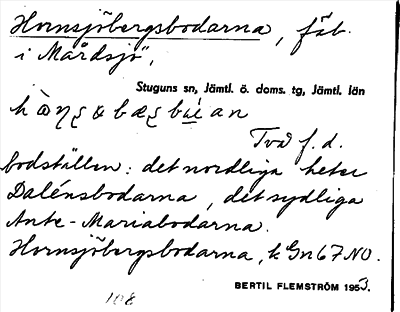 Hornsjöbergsbodarna, fäb.
i Mårdsjö",
Stuguns sn, Jämtl. ö. doms. tg, Jämtl. län
Två f.d.
bodställen: det nordliga heter
Dalénsbodarna, det sydliga
Ante-Mariabodarna.
Hornsjöbergsbodarna, k Gn 67 NO.
BERTIL FLEMSTRÖM 1953.
108